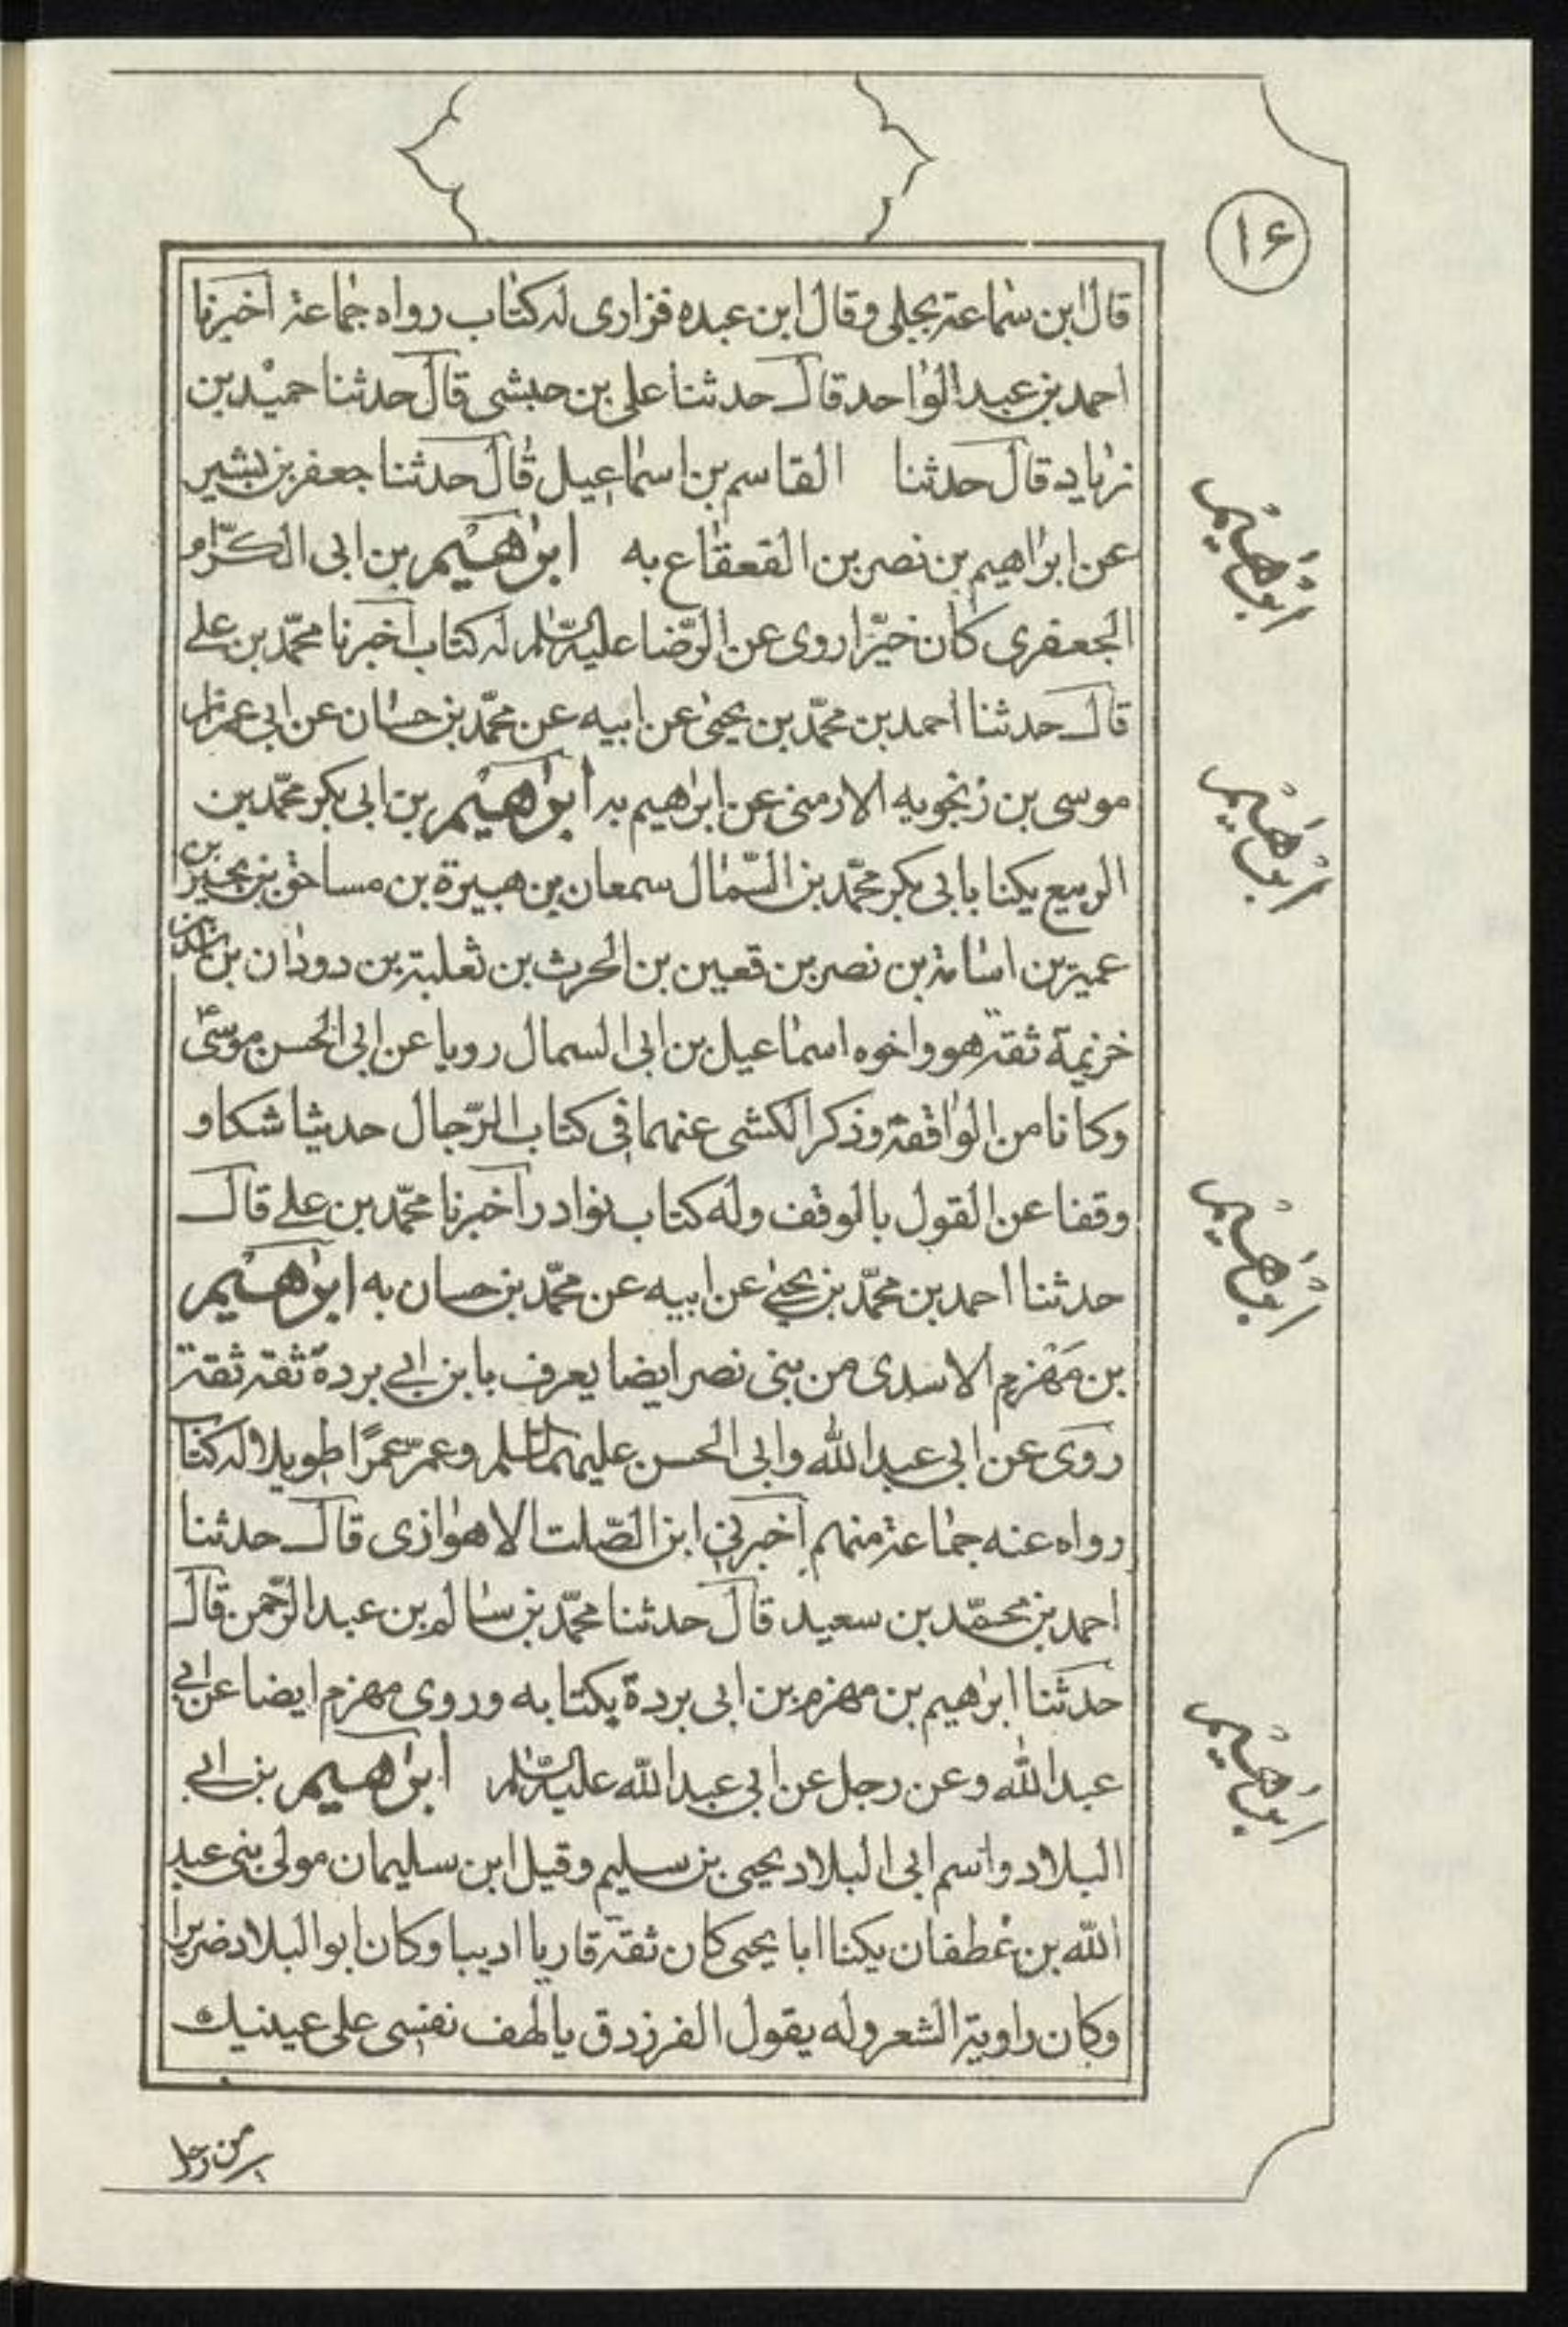 ١۶
قال ابن سماعة بجلى وقال ابن عبده فزارى له كتاب رواه جماعة اخبرنا
احمد بن عبد الواحد قال حدثنا على بن حبشى قال حدثنا حميد بن
زياد قال حدثنا القاسم بن اسماعيل قال حدثنا جعفر بن بشير
عن ابراهيم بن نصر بن القعقاع به ابراهيم بن ابى الكرّام
الجعفرى كان خيّرا روى عن الرّضا عليه السّلم له كتاب اخبرنا محمّد بن على
قال حدثنا احمد بن محمّد بن يحيى عن ابيه عن محمّد بن حسان عن ابى عمران
موسى بن زنجويه الارمنى عن ابراهيم به ابراهيم بن ابى بكر محمّد بن
الربيع يكنا بابى بكر محمّد بن السّمال سمعان بن هبيرة بن مساحق بن بجير بن
عمير بن اسامة بن نصر بن قعين بن الحرث بن ثعلبة بن دودان بن اسد بن
خزيمة ثقة هو واخوه اسماعيل بن ابى السمال رويا عن ابى الحسن موسى ع
وكانا من الواقفة وذكر الكشى عنهما فى كتاب الرّجال حديثا شكا و
وقفا عن القول بالوقف وله كتاب نوادر اخبرنا محمّد بن على قال
حدثنا احمد بن محمّد بن يحيى عن ابيه عن محمّد بن حسان به ابراهيم
بن مَهْزم الاسدى من بنى نصر ايضا يعرف بابن ابى بردة ثقة ثقة
روى عن ابى عبد الله وابى الحسن عليهما السّلم وعمر عمرًا طويلا له كتاب
رواه عنه جماعة منهم اخبرنى ابن الصّلت الاهوازى قال حدثنا
احمد بن محمّد بن سعيد قال حدثنا محمّد بن سالم بن عبد الرّحمن قال
حدثنا ابراهيم بن مهزم بن ابى بردة بكتابه وروى مهزم ايضا عن ابى
عبد الله وعن رجل عن ابى عبد الله عليه السّلم ابراهيم بن ابى
البلاد واسم ابى البلاد يحيى بن سليم وقيل ابن سليمان مولى بنى عبد
الله بن غطفان يكنا ابا يحيى كان ثقة قاريا اديبا وكان ابو البلاد ضريرا
وكان راوية الشعر وله يقول الفرزدق يا لهف نفسى على عينيك
من رجل
ابراهيم
ابراهيم
ابراهيم
ابراهيم